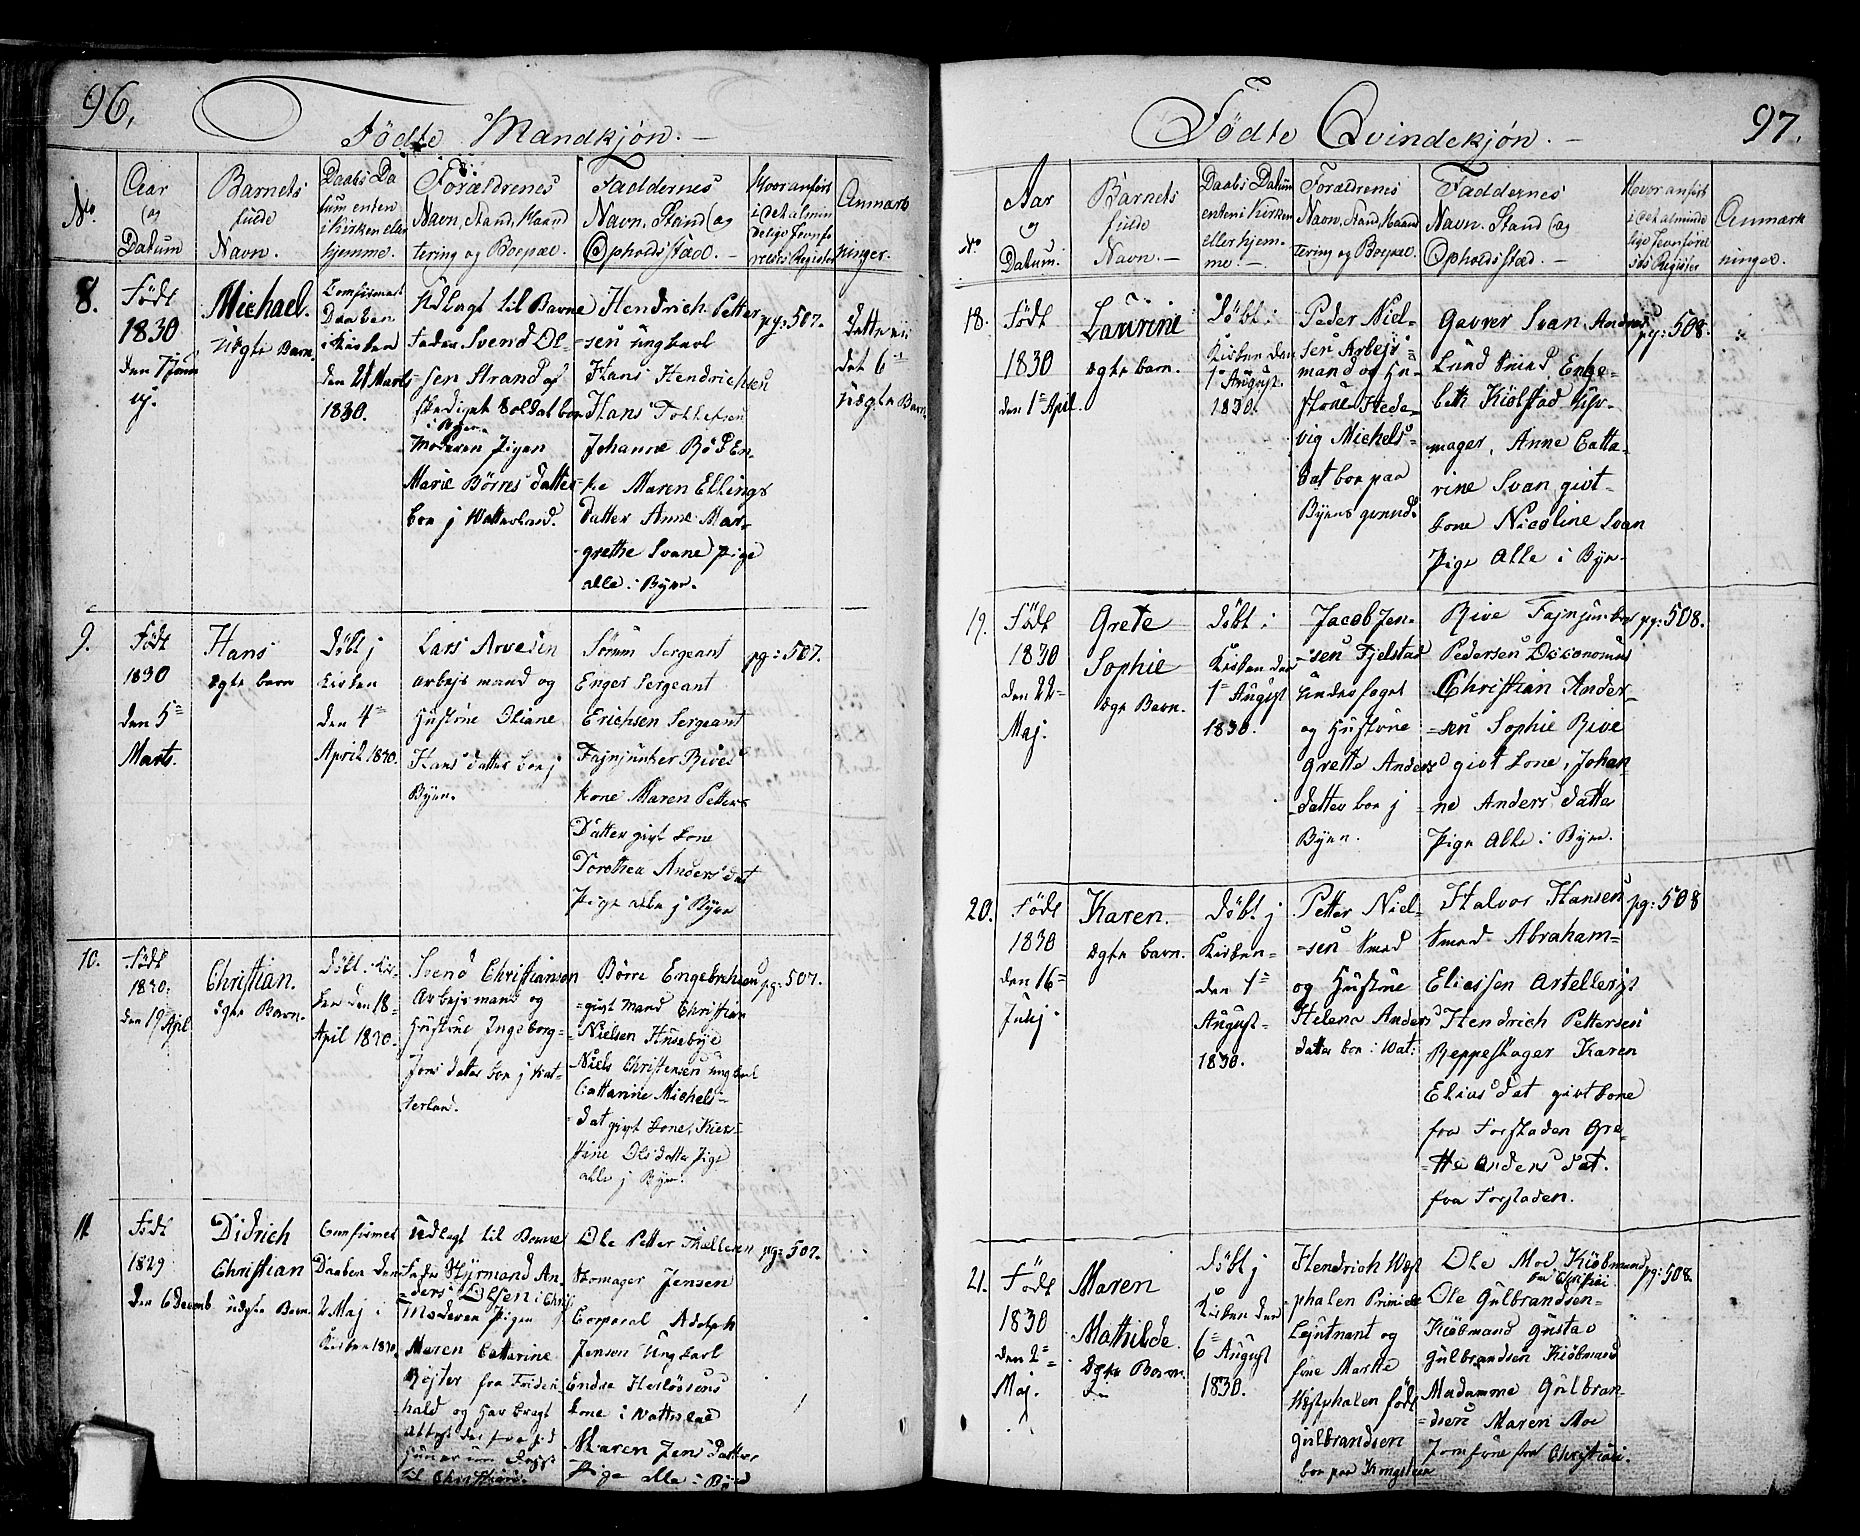 96.
Fødte Mandkjøn.
No
Aar og Datum
Barnets fulde Navn.
Daabs Datum enten i Kirken eller hjemme.
Forældrenes Navn, Stand, Haandtering og Boepæl.
Faddernes Navn, Stand og Opholdsstæd.
Hvor anført i det almindelige Jevnførelses Register
Anmærkninger.
8.
Født
1830
den 7 Janu
Michael.
Uægte Barn.
Confirmert
Daaben
i Kirken
den 21 Marts
1830.
Udlagt til Barne
Fader Svend Ol-
sen Strand af
skediget Soldat boe
i Byen
Moderen Pigen
Marie Børres datter
boe j Watterland.
Hendrich Petter
sen ungkarl
Hans Hendrichsen
Hans Tollefsen
Johanne Rød En-
ke Maren Ellings
datter Anne Mar-
grethe Svane Pige
alle i Byen.
pg: 507.
Dette er
det 6te
uægte Barn
9.
Født
1830
den 5te
Marts.
Hans
ægte barn
Døbt j
Kirken
den 4de
April 1830.
Lars Arvesen
arbejs mand og
Hustrue Oliane
Hans datter boe j
Byen.
Sørum Sergeant
Enger Sergeant
Erichsen Sergeant
Fajnjunker Rives
kone Maren Petters
Datter givt kone
Dorothea Anders dat
Pige alle j Byen
pg: 507.
10.
Født
1830.
den 19 April
Christian.
ægte Barn.
Døbt i Kir-
ken den 18
April 1830.
Svend Christiansen
Arbejsmand og
Hustrue Ingeborg
Jons datter boe j Wat-
terland.
Børre Engebrethsen
givt mand Christian
Nielsen Huseby
Niels Christensen ungkarl
Cattarine Michels-
dat givt kone, Kier-
stine Ols datter Pige
alle j Byen.
pg: 507.
11
Født
1829
den 6 Decemb
Didrich
Christian
uægte Barn.
Confirmert
Daaben den
2 Maj i
Kirken 1830.
Udlagt til Barne
Fader Styrmand An-
ders Olsen i Christi
Moderen Pigen
Maren Cattarine
Rejster fra Friderich-
hald og har bragt
til Christiania.
Ole Petter
Skomager Jensen
Corporal Adolph
Jensen Ungkarl
Endre Herløssens
kone i Watterland
Maren Jens datter
Pige alle i Byen
pg: 507.
97.
Fødte Qvindekjøn.
No
Aar og Datum.
Barnets fulde Navn.
Daabs Datum enten i Kirken eller hjemme
Forældrenes Navn, Stand, Haandtering og Boepæl.
Faddernes Navn, Stand og Opholdsstæd.
Hvor anført i det almindelige Jevnførelses Register
Anmærkninger.
18.
Født
1830
den 1te April.
Laurine
ægte barn.
Døbt i
Kirken den
1te August.
1830.
Peder Niel-
sen Arbejs
mand og Hu-
strue Hede-
vig Michels
dat boe paa
Byens grund.
Garver Svan Andreas
Lund Smed Enge-
beth Kiølstad Uhr-
mager, Anne Catta-
rine Svan givt
kone Nicoline Svan
Pige Alle i Byen.
pg: 508.
19.
Født
1830
den 22
Maj.
Grete
Sophie
ægte Barn.
Døbt i
Kirken den
1te August
1830.
Jacob Jen-
sen Fjelstad
Underfoget
og Hustrue
Grette Anders
datter boe j
Byen.
Rive Fajnjunker
Pedersen Oeconomus
Christian Ander-
sen Sophie Rive
givt kone, Johan
ne Anders datter
Pige Alle i Byen.
pg: 508.
20.
Født
1830
den 16
Julj.
Karen.
ægte barn.
Døbt j
Kirken
den 1te
August
1830.
Petter Niel-
sen Smed
og Hustrue
Helena Anders
datter boe i Wat:
Halvor Hansen
Smed Abraham
Eliassen Artellerist
Hendrich Pettersen
Reppeslager Karen
Elias dat givt kone
fra Forstaden Gre-
tte Anders dat.
fra Forstaden.
pg: 508
21.
Født
1830
den 2
Maj.
Maren
Mathilde.
Ægte Barn
Døbt j
Kirken den
6te August
1830.
Hendrich West
phalen Primier
Lejutnant og
frue Marthe
Westphalen født
Gulbrandsen
boe paa Kongsteen
Ole Moe Kiøbmand
fra Christiai
Ole Gulbrandsen
Kiøbmand Gustav
Gulbrandsen Kiøbmand
Madamme Gulbran-
dsen Maren Moe
Jomfrue fra Christiai.
pg: 508.